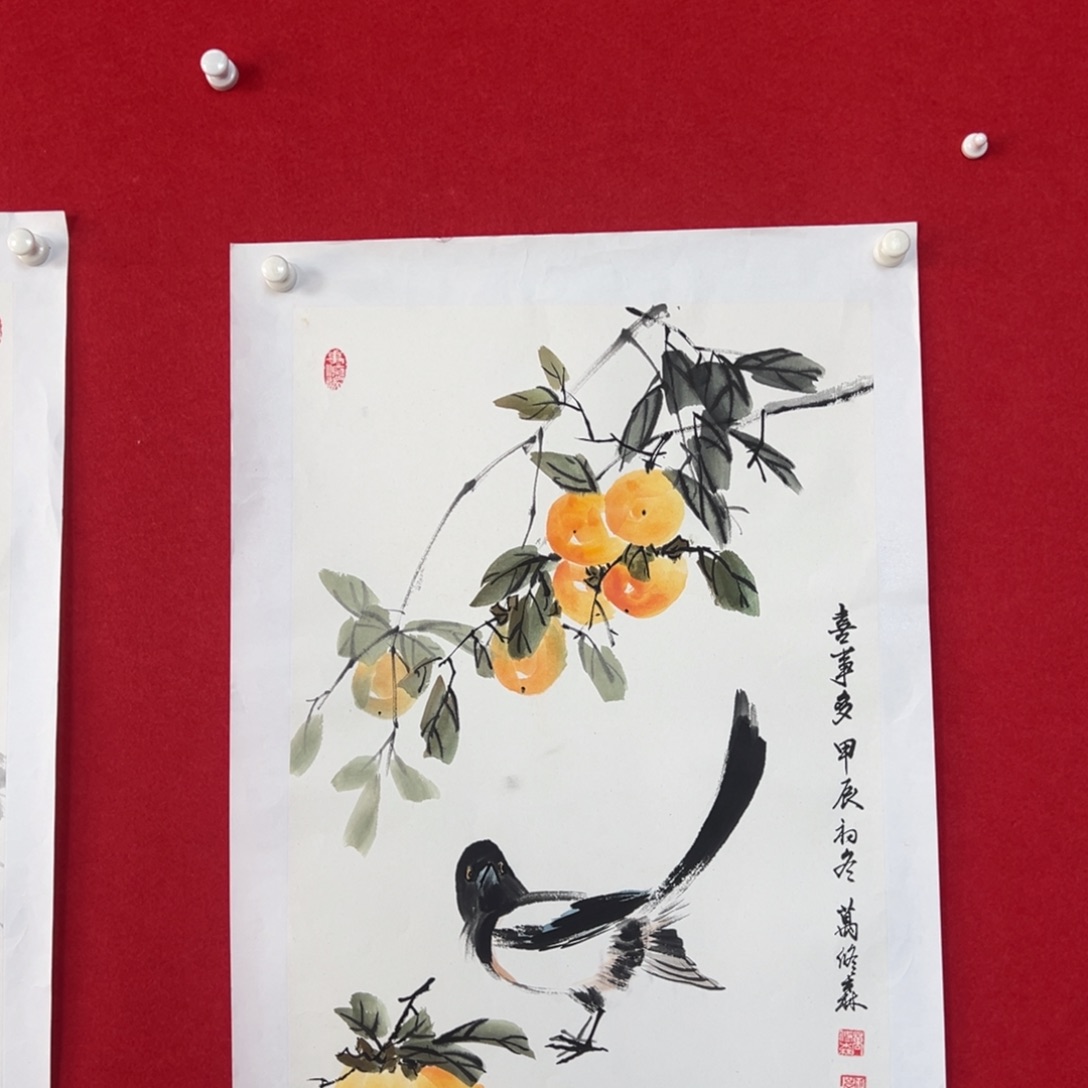 喜事多 甲辰初冬 萬修森